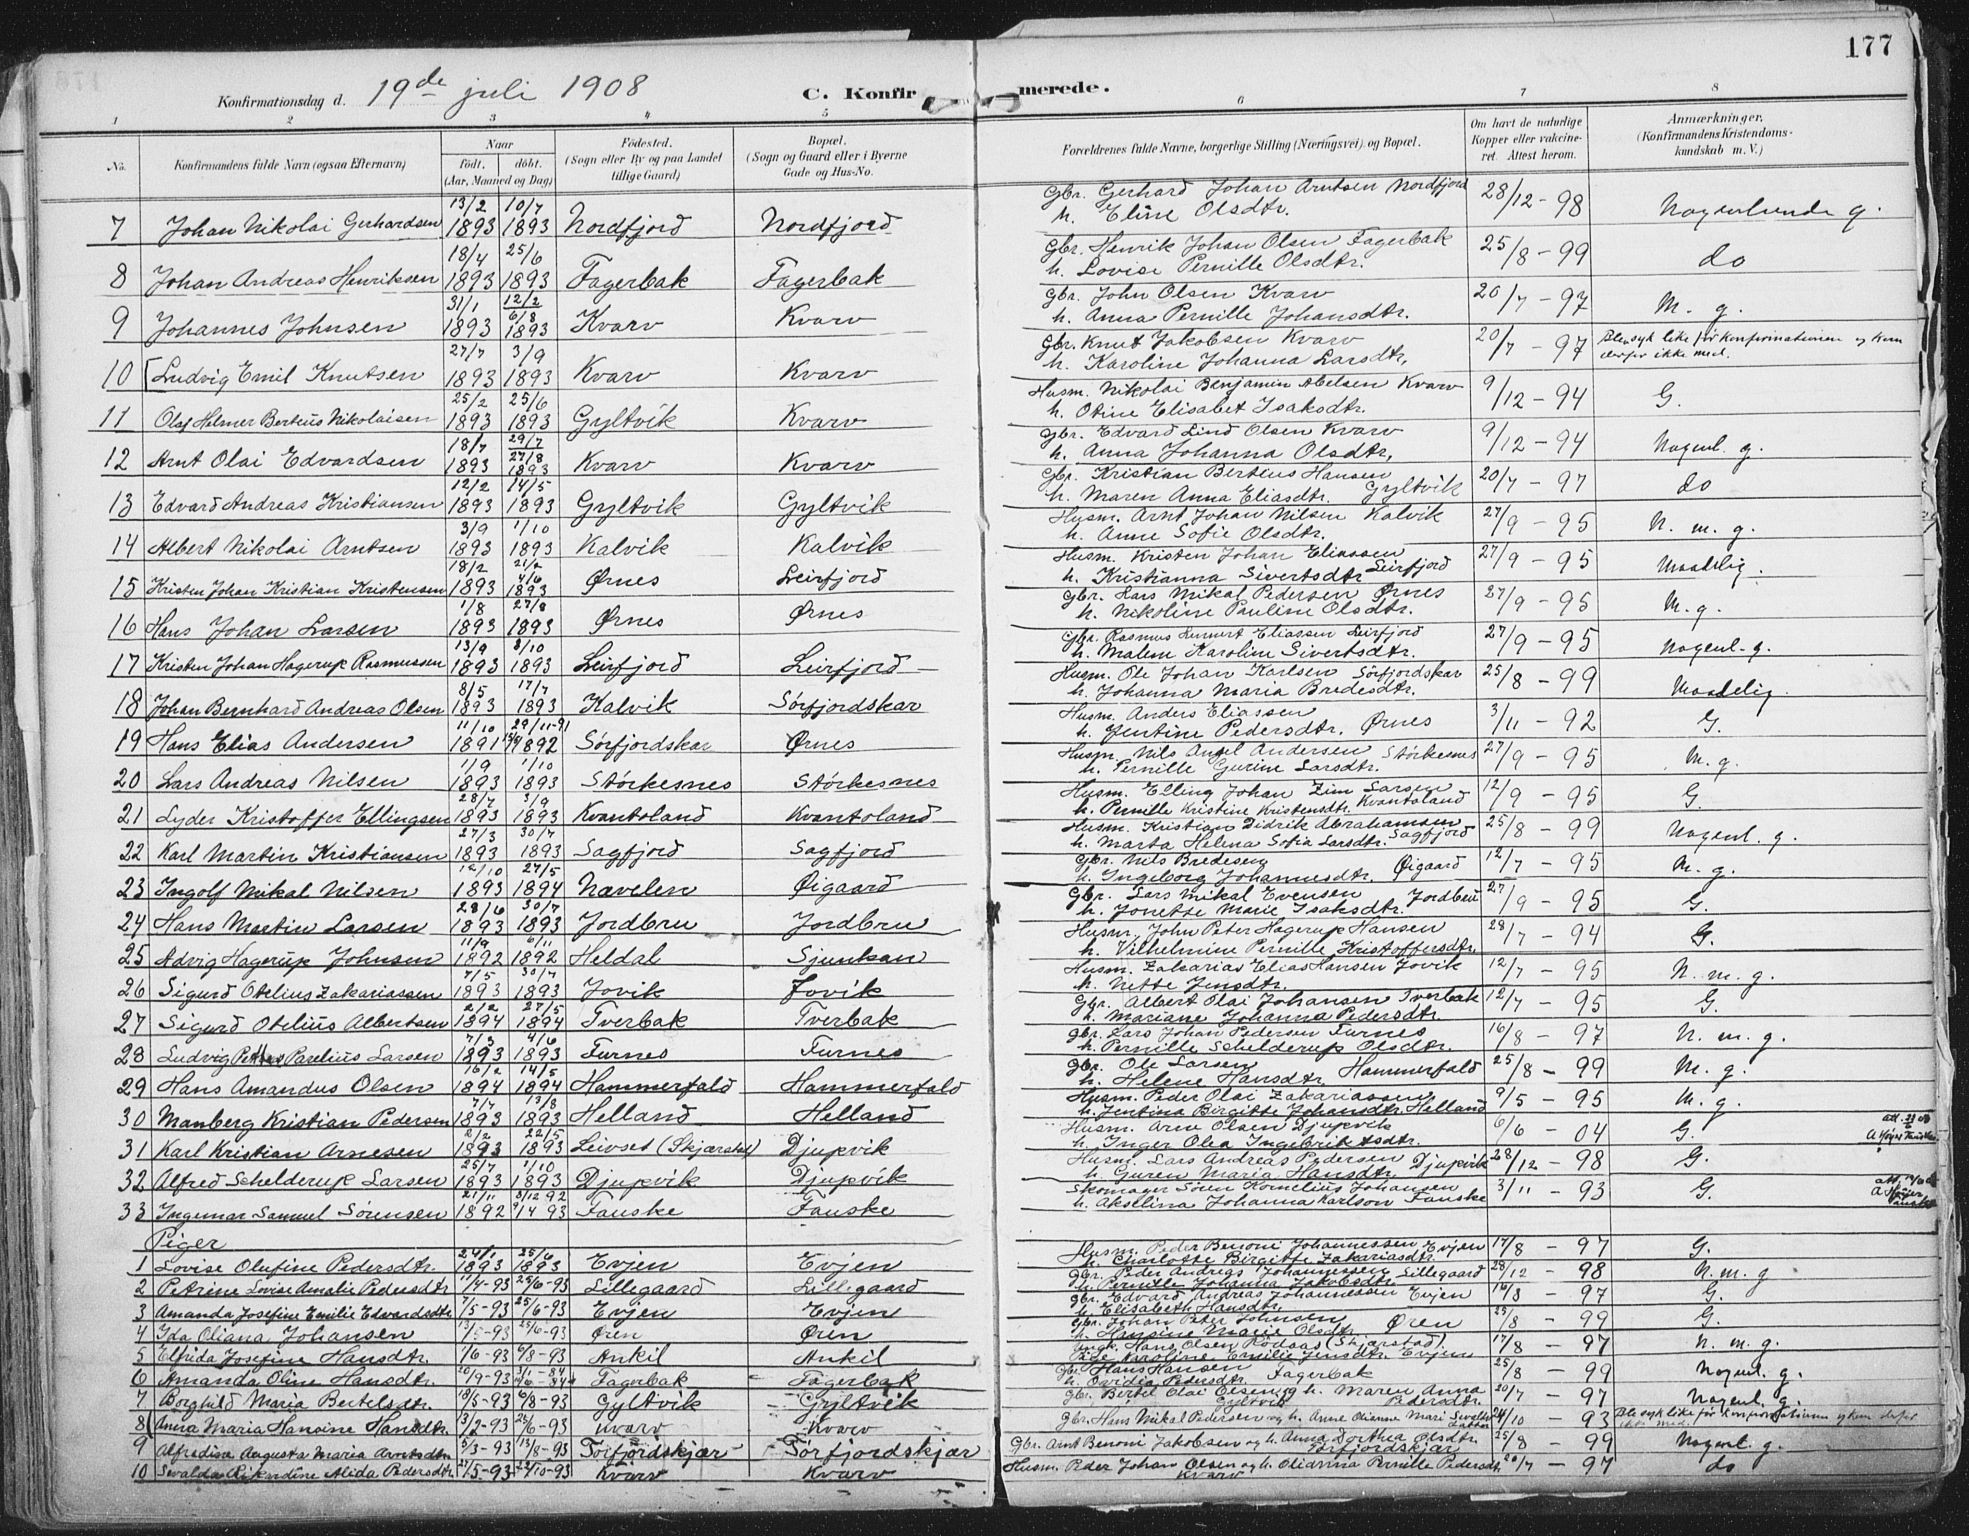 177
Konfirmationsdag d. 19de juli 1908
C. Konfirmerede.
1 2 3 4 5 6 7 8
No. Konfirmandens fulde Navn (ogsaa Efternavn) Naar født. døbt. (Aar, Maaned og Dag) Fødested. (Sogn eller By og paa Landet tillige Gaard) Bopæl. (Sogn og Gaard eller i Byerne Gade og Hus-No. Forældrenes fulde Navne, borgerlige Stilling (Næringsvei) og Bopæl. Om havt de naturlige Kopper eller vakcineret. Attest herom. Anmærkninger. (Konfirmandens Kristendomskundskab m. V.)
7 Johan Nikolai Gerhardsen 13/2 1893 10/7 1893 Nordfjord Nordfjord Gbr. Gerhard Johan Arntsen Nordfjord h. Eline Olsdtr. 28/12 - 98 Nogenlunde g.
8 Johan Andreas Henriksen 18/4 1893 25/6 1893 Fagerbak Fagerbak Gbr. Henrik Johan Olsen Fagerbak h. Lovise Pernille Olsdtr. 25/8 - 99 do
9 Johannes Johnsen 31/1 1893 12/2 6/8 1893 Kvarv Kvarv Gbr. John Olsen Kvarv h. Anna Pernille Johansdtr. 20/7 - 97 M. g.
10 Ludvig Emil Knutsen 27/7 1893 3/9 1893 Kvarv Kvarv Gbr. Knut Jakobsen Kvarv h. Karoline Johanna Larsdtr. 20/7 - 97 Blev syk like før konfirmationen og kom derfor ikke med.
11 Olaf Helmer Bertius Nikolaisen 25/2 1893 25/6 1893 Gyltvik Kvarv Husm. Nikolai Benjamin Abelsen Kvarv h. Otine Elisabet Isaksdtr. 9/12 - 94 G.
12 Arnt Olai Edvardsen 18/7 1893 29/7 27/8 1893 Kvarv Kvarv Gbr. Edvard Lind Olsen Kvarv h. Anna Johanna Olsdtr. 9/12 - 94 Nogenl. g.
13 Edvard Andreas Kristiansen 12/2 1893 14/5 1893 Gyltvik Gyltvik Gbr. Kristian Bertius Hansen h. Maren Anna Eliasdtr. Gyltvik 20/7 - 97 do
14 Albert Nikolai Arntsen 3/9 1893 1/10 1893 Kalvik Kalvik Husm. Arnt Johan Nilsen Kalvik h. Anne Sofie Olsdtr. 27/9 - 95 N. m. g.
15 Kristen Johan Kristian Kristensen 18/2 1893 21/2 4/6 1893 Ørnes Leirfjord Husm. Kristen Johan Eliassen h. Kristianna Sivertsdtr Leirfjord 27/9 - 95 Maadelig.
16 Hans Johan Larsen 1/8 1893 27/8 1893 Ørnes Ørnes Gbr. Lars Mikal Pedersen Ørnes h. Nikoline Pauline Olsdtr. 27/9 - 95 M. g.
17 Kristen Johan Hagerup Rasmussen 13/9 1893 8/10 1893 Leirfjord Leirfjord Gbr. Rasmus Lennert Eliassen Leirfjord h. Malene Karoline Sivertsdtr. 27/9 - 95 Nogenl. g.
18 Johan Bernhard Andreas Olsen 8/5 1893 17/7 1893 Kalvik Sørfjordskar Husm. Ole Johan Karlsen Sørfjordskar h. Johanna Maria Bredesdtr. 25/8 - 99 Maadelig.
19 Hans Elias Andersen 11/10 1891 29/11-91 1892 Sørfjordskar Ørnes Husm. Anders Eliassen h. Jentine Pedersdtr. Ørnes 3/11 - 92 G.
20 Lars Andreas Nilsen 1/9 1893 1/10 1893 Størkesnes Størkesnes Husm. Nils Angel Andersen Størkesnes h. Pernille Gurine Larsdtr. 27/9 - 95 M. g.
21 Lyder Kristoffer Ellingsen 28/7 1893 3/9 1893 Kvantoland Kvantoland Husm. Elling Johan Zim Larsen h. Pernille Kristine Kristensdtr. Kvantoland 12/9 - 95 G.
22 Karl Martin Kristiansen 27/3 1893 30/7 1893 Sagfjord Sagfjord Husm. Kristian Didrik Abrahamsen h. Marta Helena Sofia Larsdtr. Sagfjord 25/8 - 99 Nogenl. g.
23 Ingolf Mikal Nilsen 12/10 1893 27/5 1894 Navelen Øigaard Gbr. Nils Bredesen h. Ingeborg Johannesdtr. Øigaard 12/7 - 95 M. g.
24 Hans Martin Larsen 28/6 1893 30/7 1893 Jordbru Jordbru Gbr. Lars Mikal Evensen Jordbru h. Jonette Marie Isaksdtr. 27/9 - 95 G.
25 Advig Hagerup Johnsen 11/9 1892 6/11 1892 Heldal Sjunkan Husm. John Peter Hagerup Hansen h. Vilhelmine Pernille Kristoffersdtr. 28/7 - 94 G.
26 Sigurd Otelius Zakariassen 7/5 1893 30/7 1893 Jovik Jovik Husm. Zakarias Elias Hansen Jovik h. Nette Jensdtr. 12/7 - 95 N. m. g.
27 Sigurd Otelius Albertsen 2/2 1894 27/5 1894 Tverbak Tverbak Gbr. Albert Olai Johansen Tverbak h. Mariane Johanna Pedersdtr. 12/7 - 95 G.
28 Ludvig Petter Parelius Larsen 7/3 1893 4/6 1893 Furnes Furnes Gbr. Lars Johan Pedersen Furnes h. Pernille Schelderup Olsdtr. 16/8 - 97 N. m. g.
29 Hans Amandus Olsen 16/2 1894 14/5 1894 Hammerfald Hammerfald Gbr. Ole Larsen h. Helene Hansdtr. Hammerfald 25/8 - 99 M. g.
30 Manberg Kristian Pedersen 7/7 1893 13/8 1893 Helland Helland Husm. Peder Olai Zakariassen h. Jentina Birgitte Johansdtr. Helland 9/5 - 95 M. g.
31 Karl Kristian Arnesen 2/2 1893 22/5 1893 Leivset (Skjærstad) Djupvik Husm. Arne Olsen Djupvik h. Inger Olea Ingebriktsdtr. 6/6 - 04 G.
32 Alfred Schelderup Larsen 25/7 1893 1/10 1893 Djupvik Djupvik Husm. Lars Andreas Pedersen h. Guren Maria Hansdtr. Djupvik 28/12 - 98 G.
33 Ingemar Samuel Sørensen 21/11 1892 3/12 92 9/4 93 Fauske Fauske Skomager Søren Kornelius Johansen h. Akselina Johanna Karlson Fauske 3/11 - 93 G.
Piger
1 Lovise Olufine Pedersdtr. 24/1 1893 25/6 1893 Evjen Evjen Husm. Peder Benoni Johannessen Evjen h. Charlotte Birgitte Zakariasdtr. 17/8 - 97 G.
2 Petrine Lovise Amalie Pedersdtr 11/4-93 25/6-93 Lillegaard Lillegaard Gbr. Peder Andreas Johannessen Lillegaard h. Pernille Johanna Jakobsdtr. 28/12 - 98 N. m. g
3 Amanda Josefine Emilie Edvardsdtr. 7/5-93 25/6-93 Evjen Evjen Gbr. Edvard Andreas Johannessen Evjen h. Elisabeth Hansdtr. 16/8 - 97 G.
4 Ida Oliana Johansen 13/5-93 25/6-93 Øren Øren Gbr. Johan Peter Johnsen Øren h. Hansine Marie Olsdtr. 25/8 - 99 G.
5 Elfrida Josefine Hansdtr. 1/6-93 6/8-93 Ankil Ankil Ungk. Hans Olsen Rødaas (Skjærstad). Pige Karoline Emilie Jensdtr. Evjen 17/8 - 97 N. m. g.
6 Amanda Oline Hansdtr. 20/9-93 Fagerbak Fagerbak Gbr. Hans Hansen h. Ovidia Pedersdtr. Fagerbak 25/8 - 99 Nogenl. g.
7 Borghild Maria Bertelsdtr. 18/5-93 6/8-93 Gyltvik Gyltvik Gbr. Bertel Olai Olsen og h. Maren Anna Gyltvik Pedersdtr. 20/7 - 97 Nogenl. g.
8 Anna Maria Hansine Hansdtr. 13/2-93 25/6-93 Kvarv Kvarv Gbr. Hans Mikal Pedersen og h. Anne Olianne Mari 24/10 - 93 Blev syk like før konfirmationen og kom derfor ikke med.
9 Alfredisa Augusta Maria Arntsdtr. 5/3-93 13/8-93 Tørfjordskjær Tørfjordskjær Gbr. Arnt Benoni Jakobsen og h. Anna Dorthea Olsdtr. Tørfjordskjær 25/8 - 99 Nogenl. g.
10 Sevalda Rikardine Alida Pedersdtr. 27/5-93 22/10-93 Kvarv Kvarv Husm. Peder Johan Olsen og h. Olidrina Pernille Pedersdtr. Kvarv 20/7 - 97 do